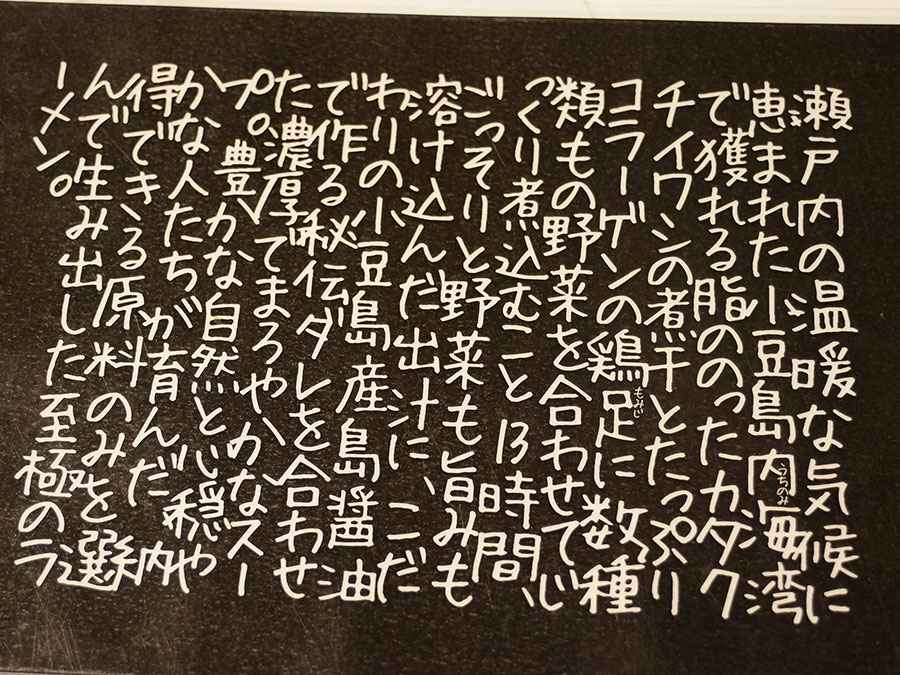 瀬戸内の温暖な気候に
恵まれた小豆島内海湾
うちのみ
で獲れる脂ののったカタク
チイワシの煮干とたっぷり
コラーゲンの鶏足に数種
もみじ
類もの野菜を合わせてじ
っくり煮込むこと13時間、
ごっそりと野菜も旨みも
溶け込んだ出汁に、こだ
わりの小豆島産島醤油
で作る秘伝ダレを合わせ
た濃厚でまろやかなスー
プ。豊かな自然と心穏や
かな人たちが育んだ納
得できる原料のみを選
んで生み出した至極のラ
ーメン。